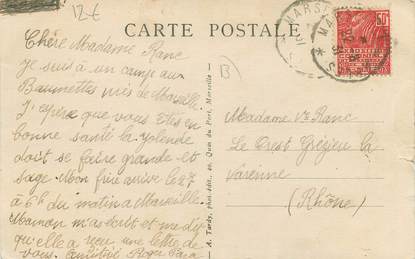 12 €
CARTE POSTALE
MARSE
50
Chère Madame Ranc
Je suis à un camp aux
Baumettes près de Marseille
J'espère que vous êtes en
bonne santé la Yolende
doit se faire grande et
sage Mon frère arrive le 27
à 6h du matin a Marseille
Maman m'as écrit et me dit
qu'elle a reçu une lettre de
vous. Amitié Roger
B
A. Tardy, phot.-édit., Quai du Port, Marseille
Madame Vve Ranc
Le Crest Grézieu la
Varenne
(Rhône)